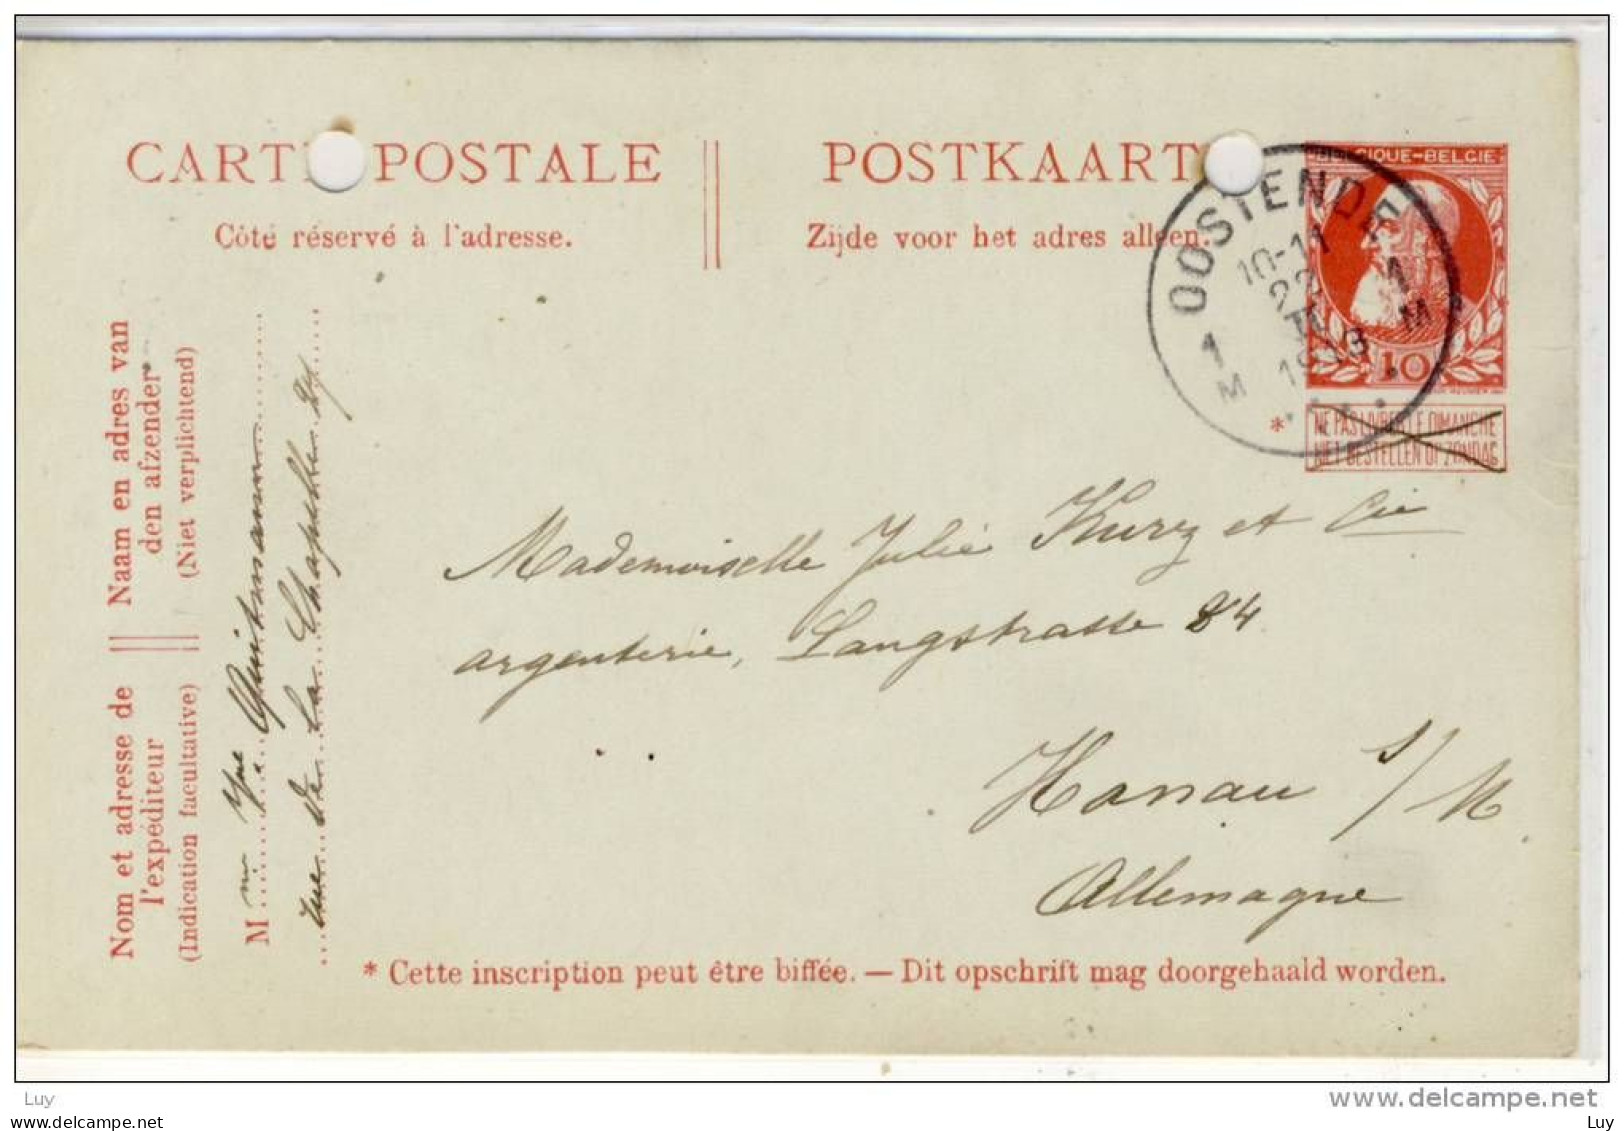 CARTE POSTALE
POSTKAART
Côté réservé à l'adresse.
Zijde voor het adres alleen.
OOSTENDE
10-11
22
1913
1 M
1 M
BELGIQUE-BELGIE
10
NE PAS LIVRER LE DIMANCHE
NIET BESTELLEN OP ZONDAG
*
Naam en adres van
den afzender
(Niet verplichtend)
Nom et adresse de
l'expéditeur
(Indication facultative)
M
rue de la Chapelle
Mademoiselle Julie Kurz et Cie
argenterie, Langstrasse 84
Hanau s/M.
Allemagne
* Cette inscription peut être biffée. — Dit opschrift mag doorgehaald worden.
Luy
www.delcampe.net
Luy
www.delcampe.net
Luy